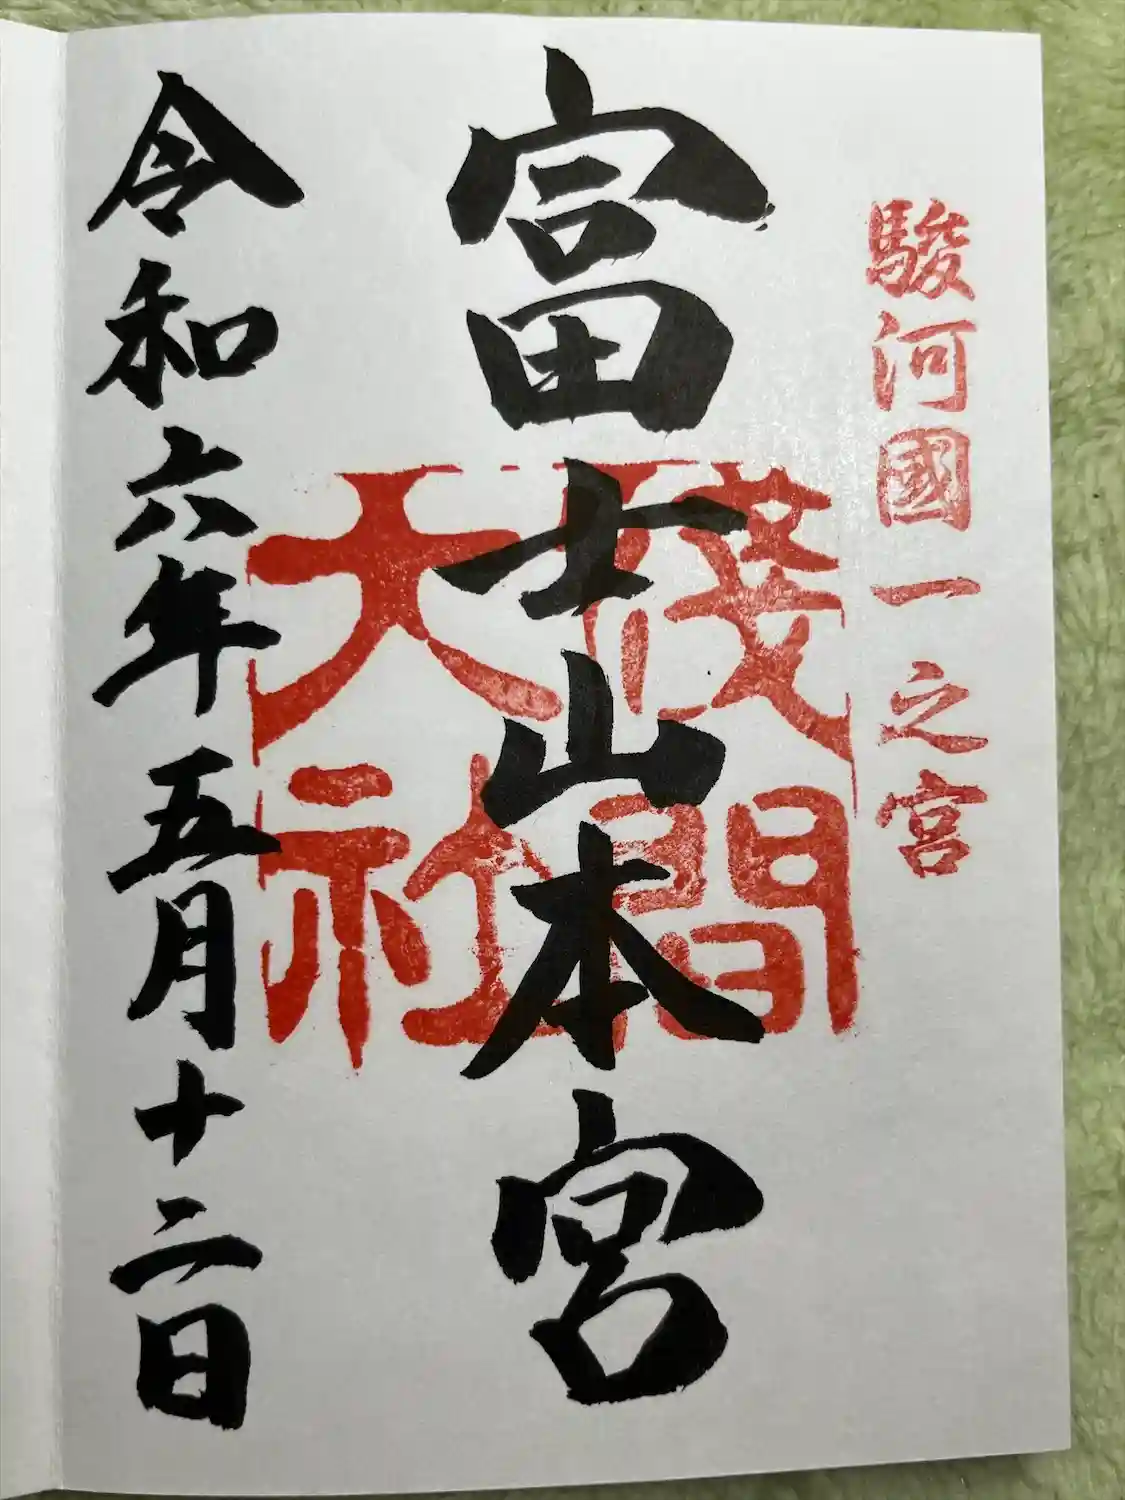 駿河國一之宮
富士山本宮
淺間大社
令和六年五月十二日